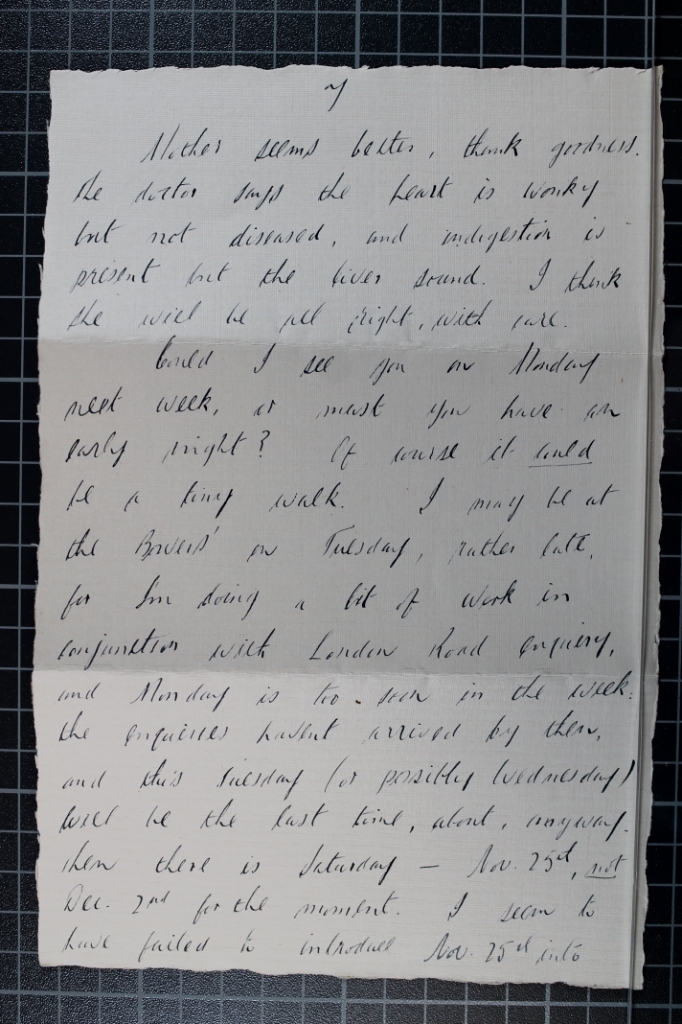 7
Mother seems better, thank goodness.
The doctor says the heart is wonky
but not diseased, and indigestion is
present but the liver sound. I think
she will be all right, with care.
Could I see you on Monday
next week, or must you have an
early night? Of course it could
be a tiny walk. I may be at
the Bowers' on Tuesday, rather late,
for I'm doing a bit of work in
conjunction with London Road enquiry,
and Monday is too soon in the week:
the enquiries havent arrived by then,
and this Tuesday (or possibly Wednesday)
will be the last time, about, anyway.
Then there is Saturday — Nov. 25th, not
Dec. 2nd for the moment. I seem to
have failed to introduce Nov. 25th into